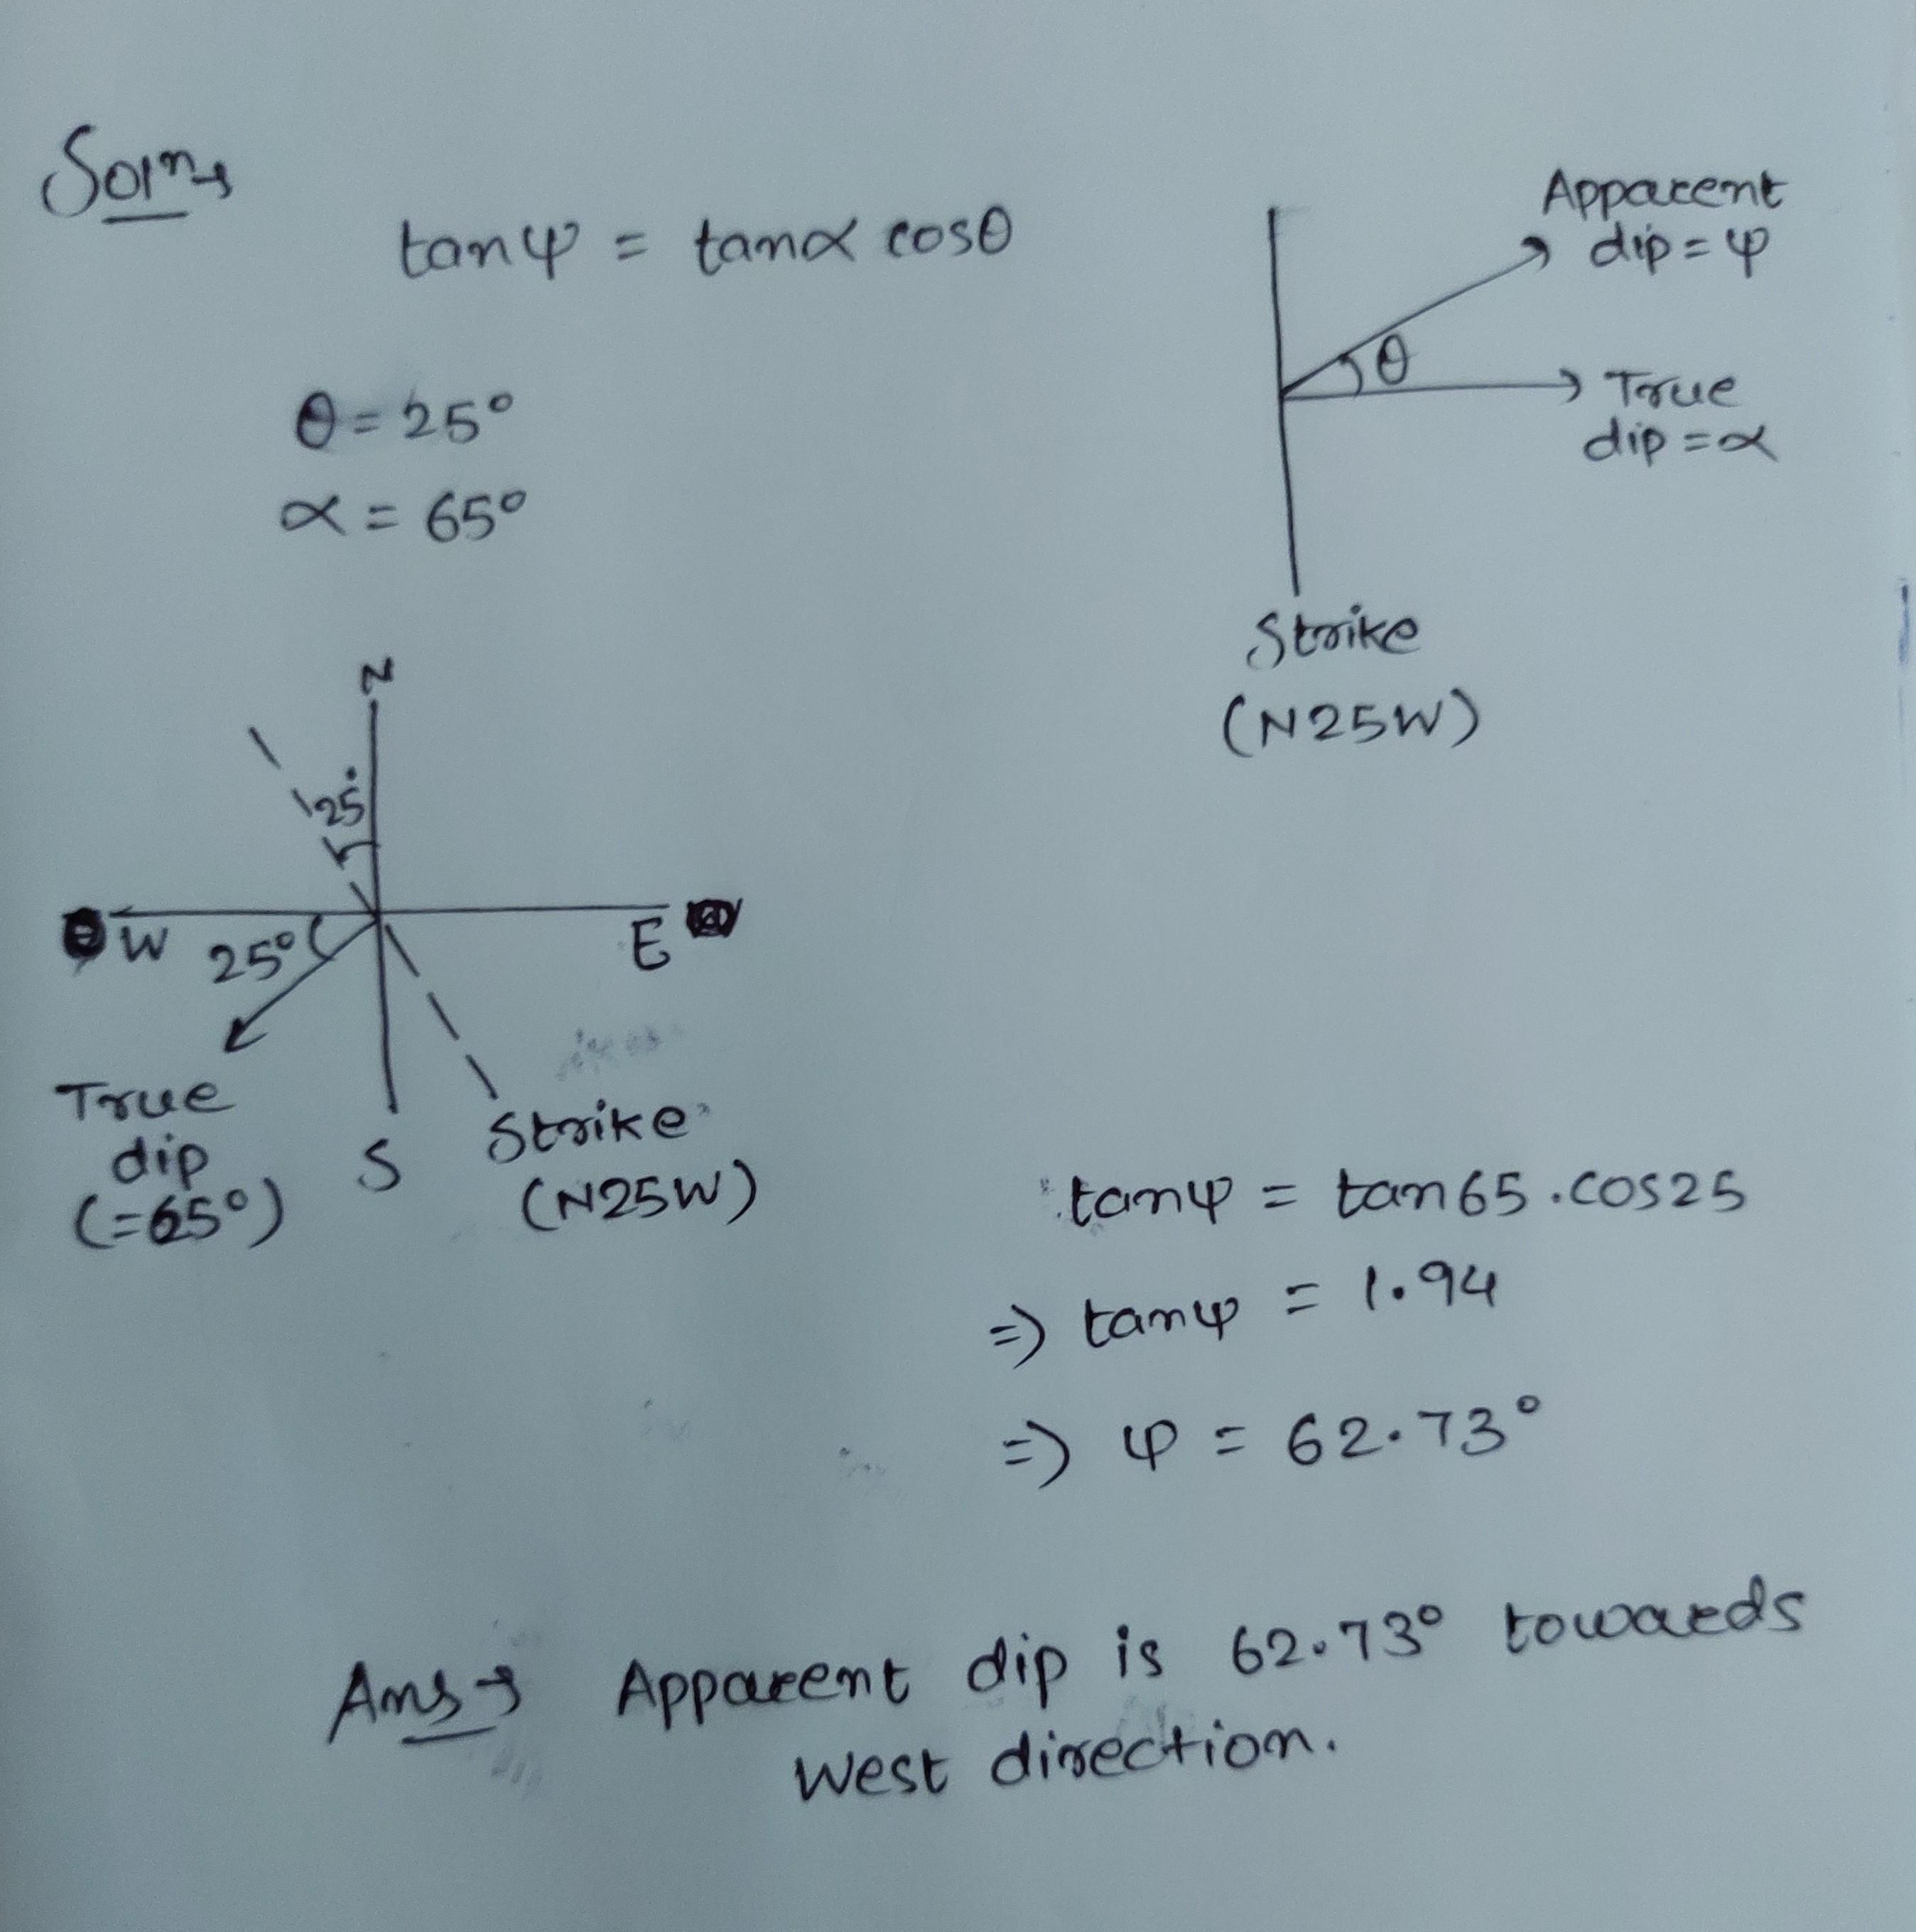 Soln→
tanφ = tanα cosθ
θ = 25°
α = 65°
Apparent
dip = φ
θ
True
dip = α
Strike
(N25W)
N
25°
W 25° E
True
dip
(=65°)
S
Strike
(N25W)
tanφ = tan65.cos25
=) tanφ = 1.94
=) φ = 62.73°
Ans→ Apparent dip is 62.73° towards
West direction.